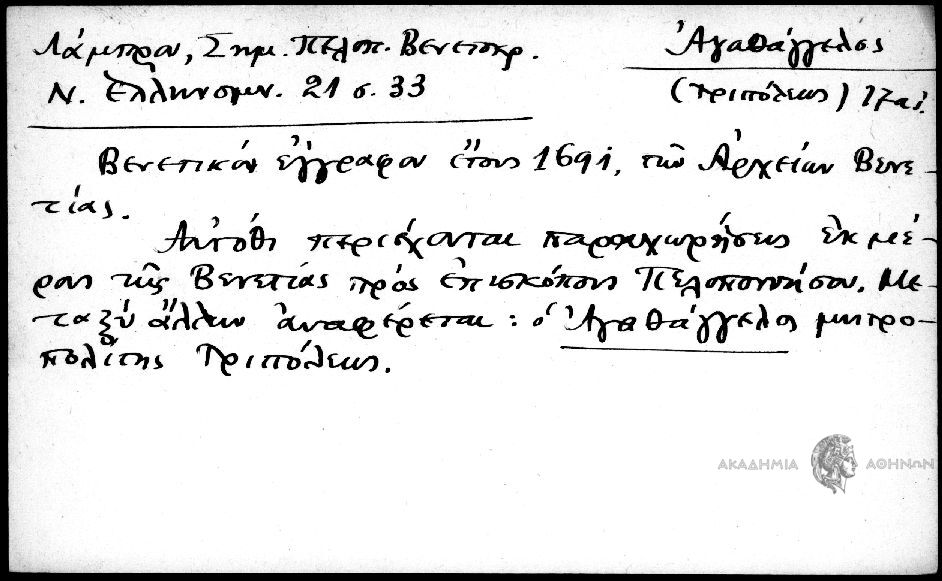 Λάμπρου, Σημ. Πελοπ. Βενετοκρ.
Ν. Ἑλληνομν. 21 σ. 33
Ἀγαθάγγελος
(Τριπόλεως) 17 αἰ.
Βενετικόν ἔγγραφον ἔτους 1691, τῶν Ἀρχείων Βενε-
τίας.
Αὐτόθι περιέχονται παραχωρήσεις ἐκ μέ-
ρους τῆς Βενετίας πρός ἐπισκόπους Πελοποννήσου. Με-
ταξύ ἄλλων ἀναφέρεται: ὁ Ἀγαθάγγελος μητρο-
πολίτης Τριπόλεως.
ΑΚΑΔΗΜΙΑ ΑΘΗΝΩΝ